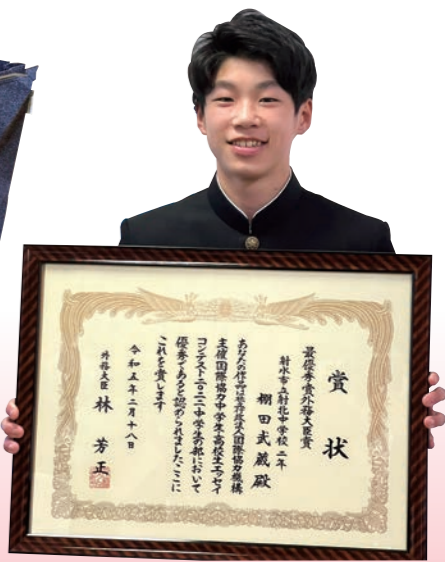 賞状
最優秀賞外務大臣賞
射水市立射北中学校 二年
棚田武蔵殿
あなたの作品は独立行政法人国際協力機構
主催国際協力中学生・高校生エッセイ
コンテスト二〇二二中学生の部において
優秀であると認められましたここに
これを賞します
令和五年二月十八日
外務大臣 林芳正